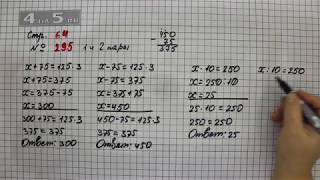 Стр. 64
№ 295 1 и 2 пары
- 450
75
375
x+75=125·3
x+75=375
x=375-75
x=300
300+75=125·3
375=375
Ответ: 300
x-75=125·3
x-75=375
x=375+75
x=450
450-75=125·3
375=375
Ответ: 450
x·10=250
x=250:10
x=25
25·10=250
250=250
Ответ: 25
x:10=250